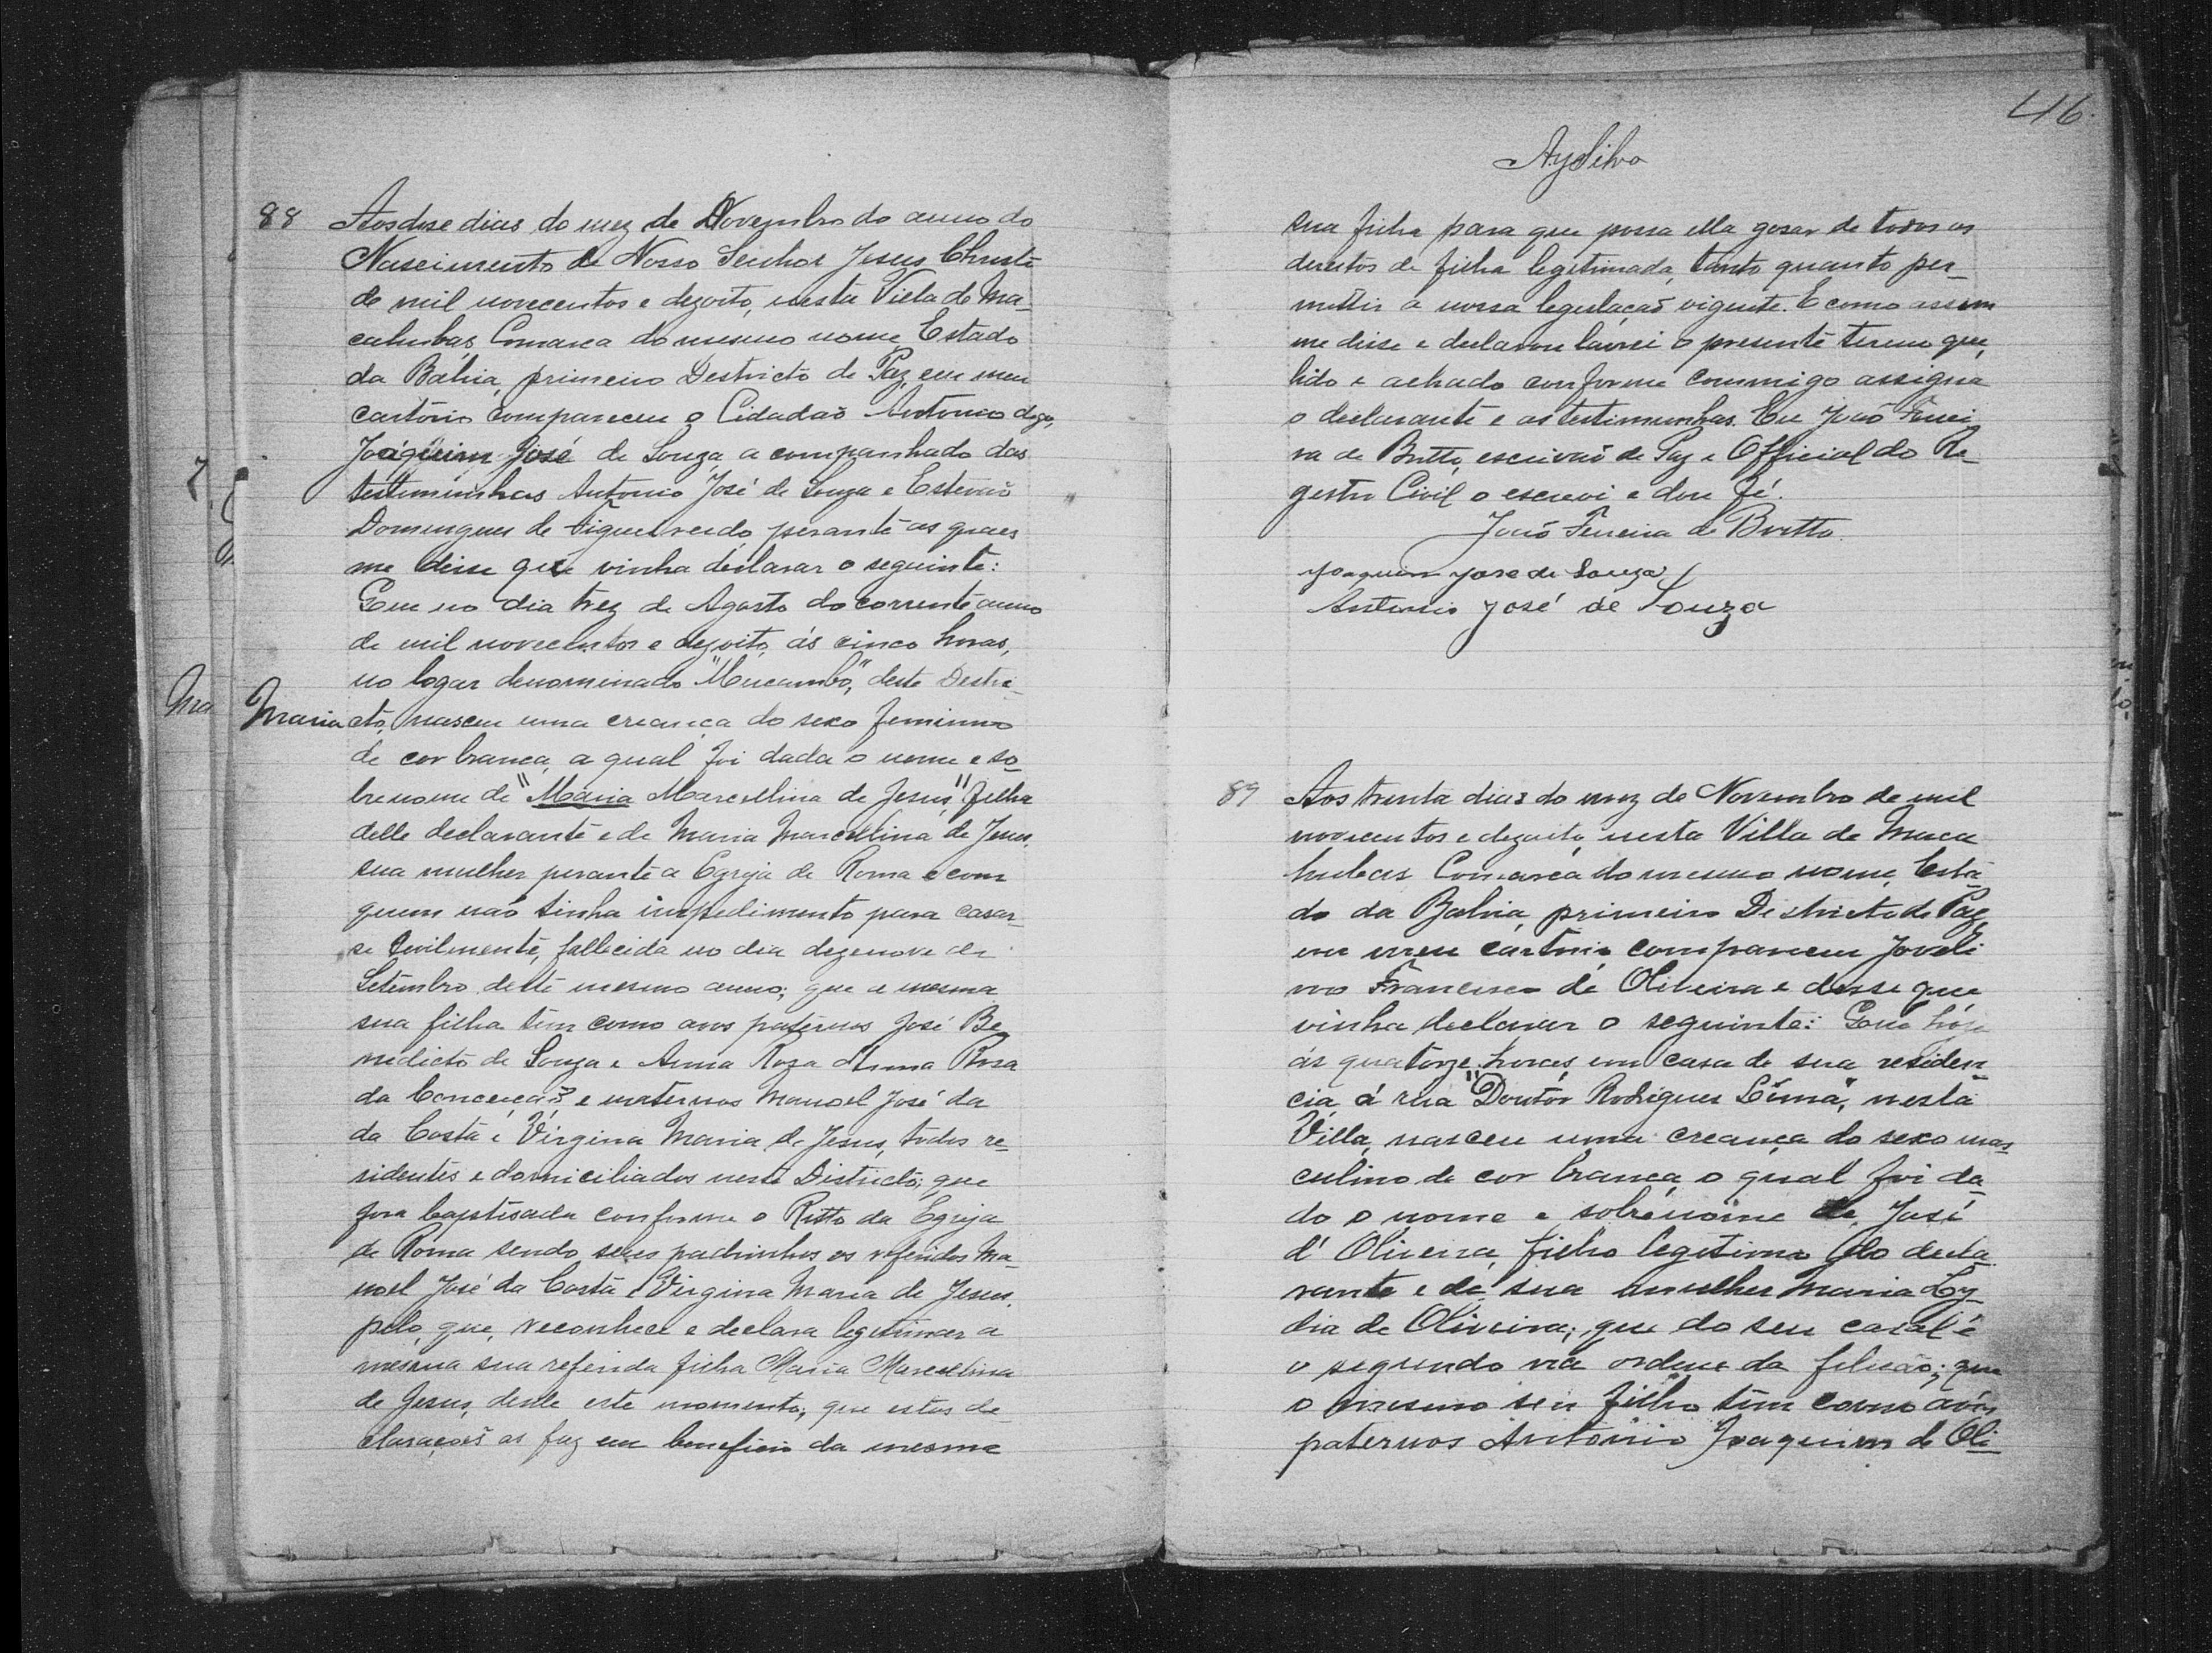 88 Aos dose dias do mez de Novembro do anno do
Nascimento de Nosso Senhor Jesus Christo
de mil novecentos e dezoito, nesta Villa de Ma-
cahubas, Comarca do mesmo nome, Estado
da Bahia, primeiro Destricto de Paz, em meu
cartório compareceu o Cidadaõ Antonio digo,
Joaquim José de Souza, a companhado das
testimunhas Antonio José de Souza e Estevaõ
Domingues de Figueiredo, perante as quaes
me disse que vinha declarar o seguinte:
Que no dia trez de Agosto do corrente anno
de mil novecentos e dezoito, ás cinco horas,
no logar denominado "Mucambo", deste Destri-
Maria cto, nasceu uma creança do sexo feminino
de cor branca, a qual foi dada o nome e so-
brenome de "Maria Marcellina de Jesus," filha
delle declarante e de Maria Marcellina de Jesus,
sua mulher perante a Egreja de Roma e com
quem naõ tinha impedimento para casar-
se Civilmente, fallecida no dia dezenove de
Setembro deste mesmo anno; que a mesma
sua filha tem como avos paternos José Be-
nedicto de Souza e Anna Roza d Anna Rosa
da Conceiçaõ e maternos Manoel José da
da Costa e Virgina Maria de Jesus, todos re-
sidentes e domiciliados neste Districto; que
fora baptisada conforme o Ritto da Egreja
de Roma sendo seus padrinhos os referidos Ma-
noel José da Costa e Virgina Maria de Jesus,
pelo que, reconhece e declara legitimar a
mesma sua referida filha Maria Marcellina
de Jesus, desde este momento; que estas de-
claraçoẽs as faz em beneficio da mesma
46.
AySilva
sua filha para que possa ella gosar de todos os
direitos de filha legitimada, tanto quanto per-
mittir a nossa legislaçaõ vigente. E como assim
me disse e declarou lavrei o presente termo que,
lido e achado conforme commigo assigna
o declarante e as testimunhas. Eu Joaõ Ferrei
ra de Britto, escrivaõ de Paz e Official do Re-
gistro Civil o escrevi e dou fé.
Joaõ Ferreira de Britto.
Joaquim Jose de Souza
Antonio José de Souza
89 Aos trinta dias do mez de Novembro de mil
novecentos e dezoito, nesta Villa de Maca
hubas Comarca do mesmo nome, Esta-
do da Bahia, primeiro Destricto de Paz
em meu cartorio compareceu Joveli
no Francisco de Oliveira e disse que
vinha declarar o seguinte: Que hoje
ás quatorze horas, em casa de sua residen-
cia, á rua "Doutor Rodrigues Lima", nesta
Villa, nasceu uma creança do sexo mas
culino de cor branca, o qual foi da-
do o nome e sobrenome de José
d' Oliveira, filho legitimo do decla-
rante e de sua mulher Maria Ly-
dia de Oliveira; que do seu casal é
o segundo na ordem da filiação; que
o mesmo seu filho tem como avós
paternos Antonio Joaquim de Oli-